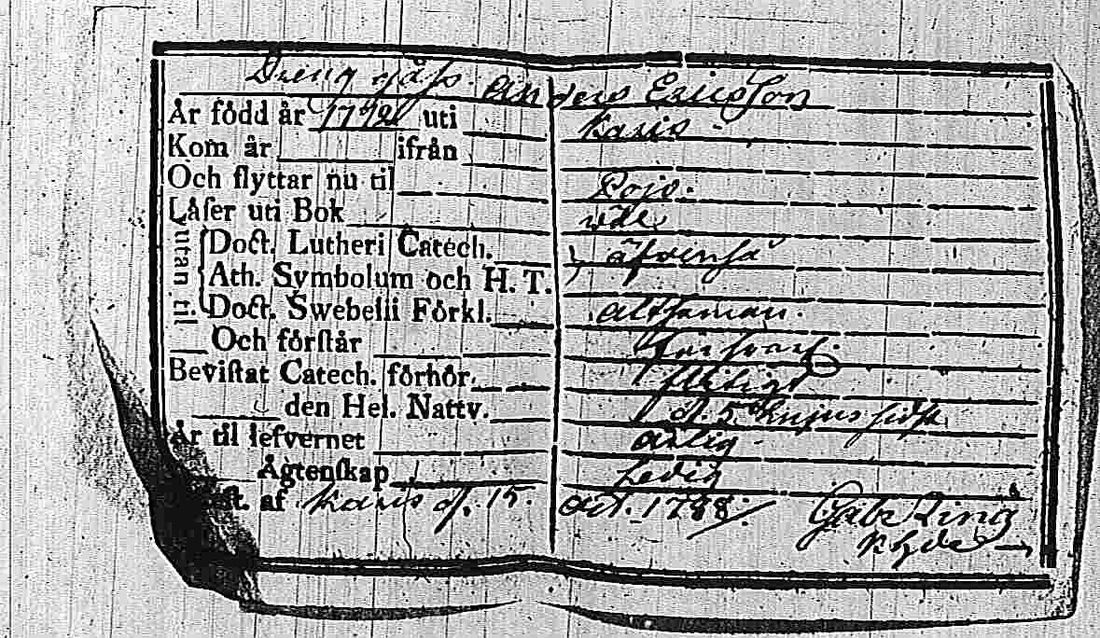 Dreng gåſs. Anders Ericsſon
Är född år 1772 uti Karis
Kom år ifrån
Och flyttar nu til Pojo.
Låſer uti Bok väl
utan til Doct. Lutheri Catech. äfvenså
Ath. Symbolum och H. T.
Doct. Swebelii Förkl.
Och förſtår
Beviſtat Catech. förhör. flitigt
den Hel. Nattv. d. 5 hujus ſidſt
Är til lefvernet ärlig
Ägtenſkap Ledig
ſt. af Karis d. 15. Oct. 1788. Gabr Ring